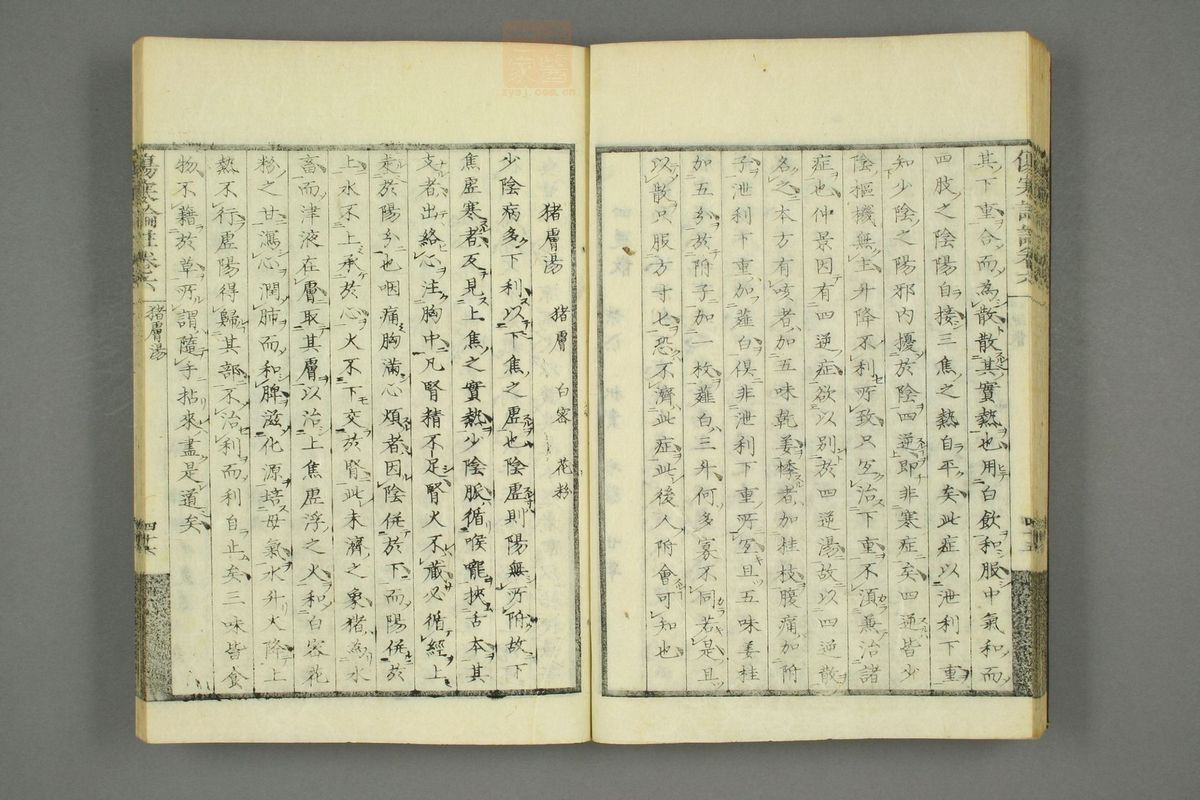 其下重合而為散散其實熱也用白飲和服中氣和而
四肢之陰陽自接三焦之熱自平矣此症以泄利下重
知少陰之陽邪內擾於陰四逆即非寒症矣四逆皆少
陰樞機無主升降不利所致只宜治下重不須兼治諸
症也仲景因有四逆症欲以別於四逆湯故以四逆散
名之本方有咳者加五味乾姜悸者加桂枝腹痛加附
子泄利下重加薤白俱非泄利下重所宜且五味姜桂
加五分於附子加一枚薤白三升何多寡不同若是且
以散只服方寸匕恐不濟此症此後人附會可知也
四十五
猪膚湯
猪膚 白容 花粉
少陰病多下利以下焦之虛也陰虛則陽無所附故下
焦虛寒者反見上焦之實熱少陰脈循喉嚨挾舌本其
支者出絡心注胸中凡腎精不足腎火不藏必循經上
走於陽分也咽痛胸滿心煩者因陰併於下而陽併於
上水不上承於心火不下交於腎此未濟之象猪為水
畜而津液在膚取其膚以治上焦虛浮之火和白容花
粉之甘瀉心潤肺而和脾滋化源培母氣水升火降上
熱不行虛陽得歸其部不治利而利自止矣三味皆食
物不藉於草所謂隨手拈來盡是道矣
傷寒論註卷六 猪膚湯 四十六
zysj.com.cn